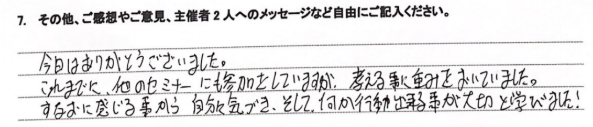 7. その他、ご感想やご意見、主催者2人へのメッセージなど自由にご記入ください。
今日はありがとうございました。
これまでに、他のセミナーにも参加をしていますが、考える事に重みをおいていました。
すなおに感じる事から 自分に気づき、そして、何か行動出来る事が大切と学びました!